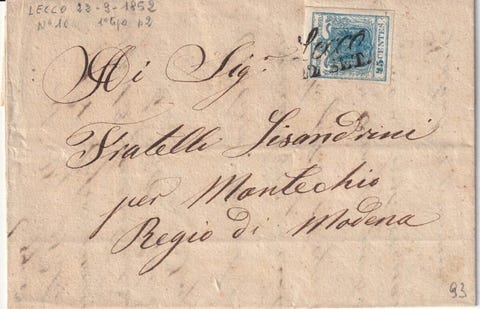 LECCO 22-9-1852
N° 10 1° tipo p2
LECCO
22 SET.
45 CENTES.
Ai Sig.ri
Fratelli Lisandrini
per Montechio
Regio di Modena
93